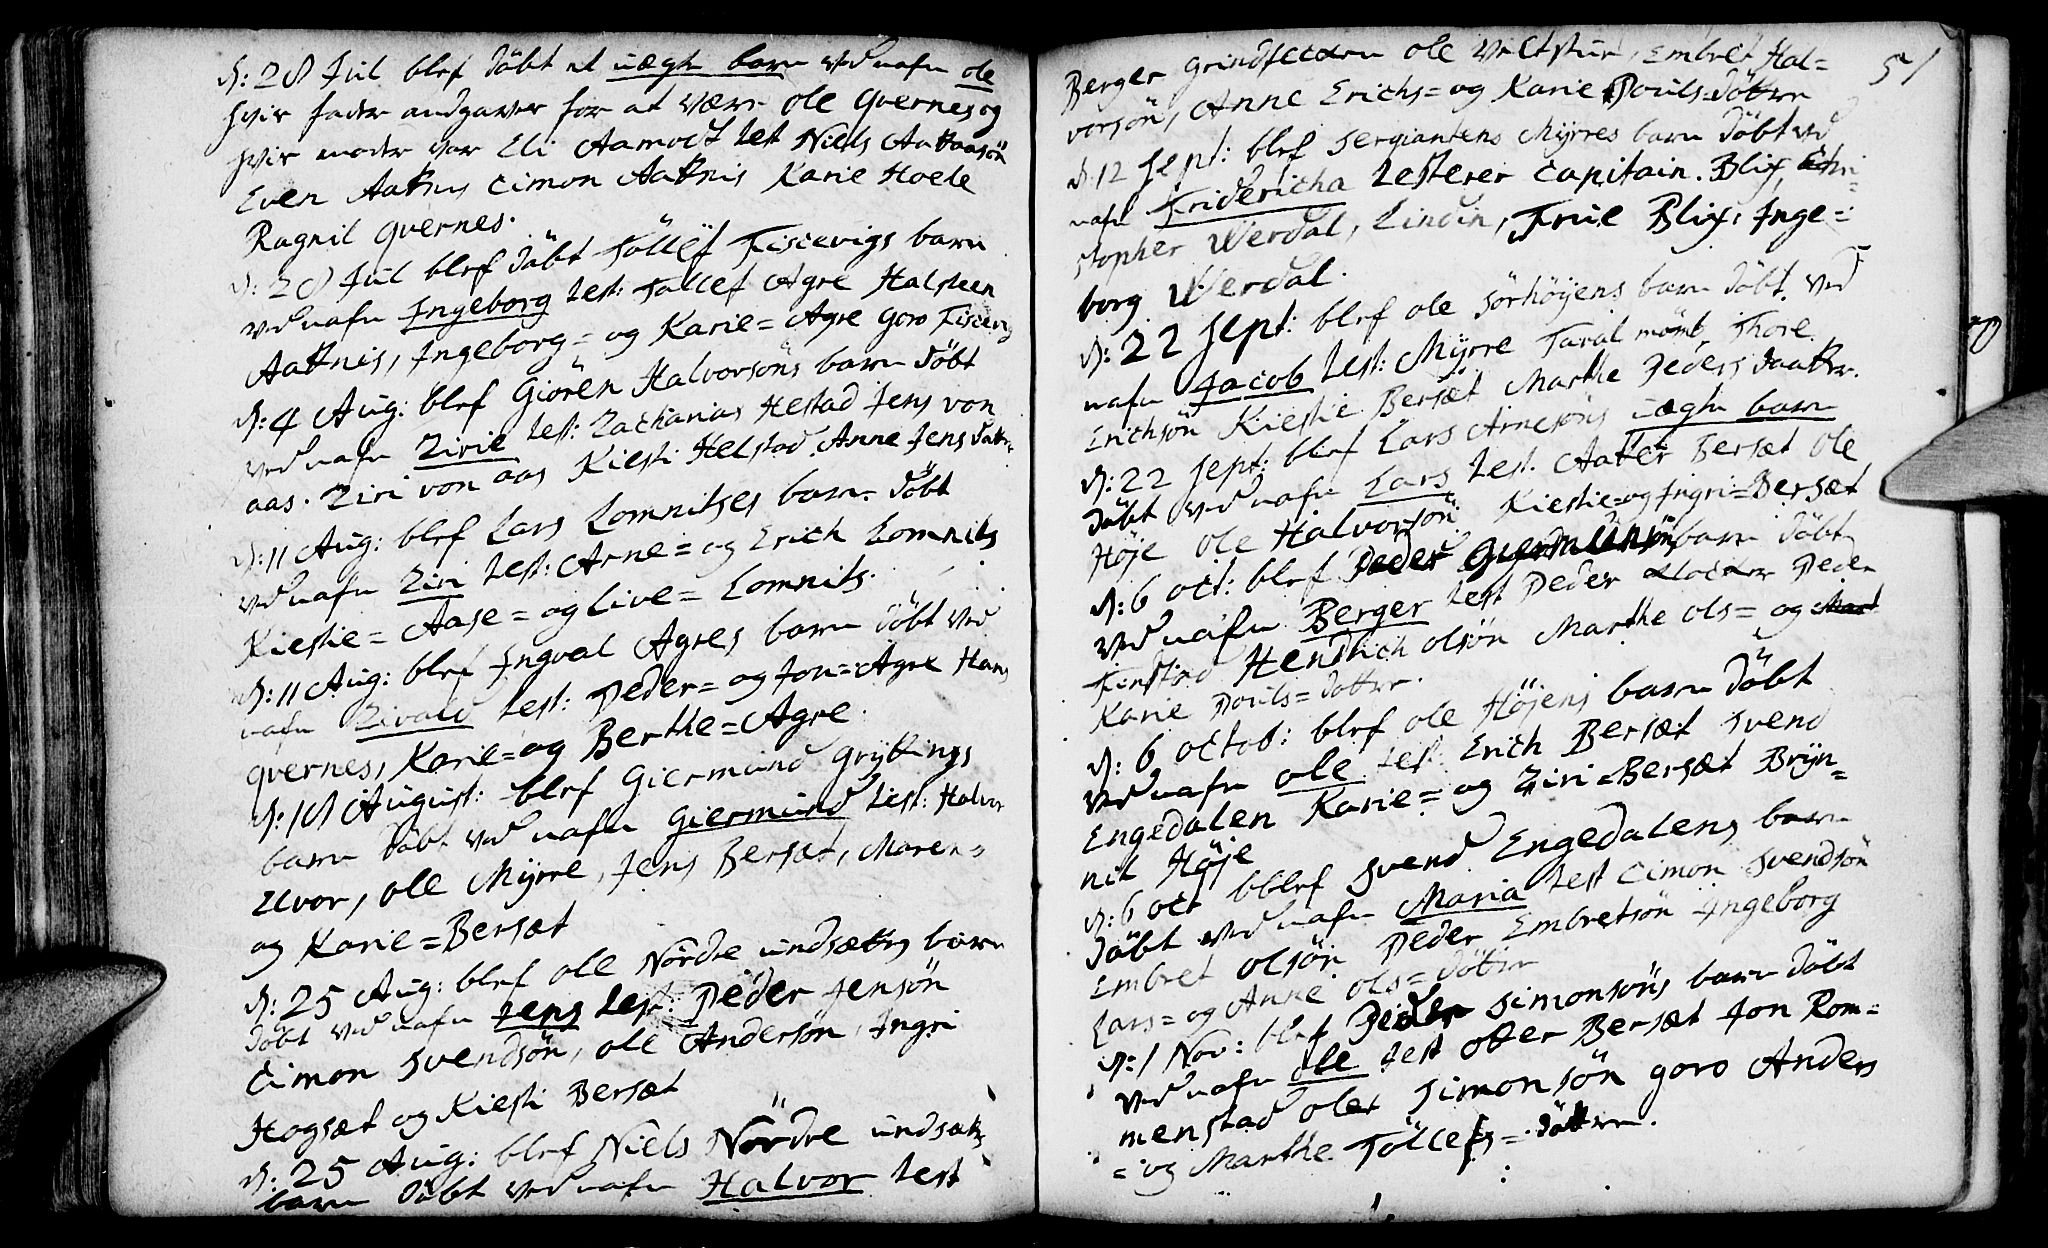 d: 28 Jul blef döbt et uægte barn ved nafn ole
hvis fader audgaves for at være ole qvernes og
hvis moder var Eli Aamodt test Niels
Even Aaknis Cimon Aaknis Karie Hoele
Ragnil qvernes.
d: 28 Jul blef döbt Töllef Fiscevigs barn
ved nafn Ingeborg test: Tollef Agre Halsteen
Aaknis, Ingeborg= og Karie= Agre Goro
d: 4 Aug: blef Giören Halvorsöns barn döbt
ved nafn Zirie test: Zacharias Hestad Jens von
aas. Ziri von aas Kiesti Helstad Anne Jens
d: 11 Aug: blef Lars Lomnitses barn döbt
ved nafn Ziri test: Arne= og Erich Lomnits
Kiestie= Aase= og Live= Lomnits.
d: 11 Aug: blef Ingval Agres barn döbt ved
nafn Zivald test: Peder= og Jon= Agre Hans
qvernes, Karie= og Berthe= Agre.
d: 18 August: blef Giermund Gryttings
barn döbt ved nafn Giermund test: Halvor
Uvor, ole Myrre, Jens Bersæt, Maren=
og Karie= Bersæt
d: 25 Aug: blef ole Nördre undsætts barn
döbt ved nafn Jens test: Peder Jensön
Cimon Svendsön, ole Andersön, Ingri
Hogsæt og Kiesti Bersæt
d: 25 Aug: blef Niels Nördre undsæts
barn döbt ved nafn Halvor test
51
Berger ole Embret Hal=
vorsön, Anne Erichs= og Karie Pouls= döttre
d. 12 Sept: blef Sergiantens Myrres barn döbt ved
nafn Fridericha testerer Capitain Blix, Chri-
stopher Werdal, Lindin, Frue Blix, Inge=
borg Werdal.
d: 22 Sept: blef ole Sörhöyens barn döbt ved
nafn Jacob test: Myrre Taral Thore
Erichsön Kiestie Bersæt Marthe Peders daatter.
d: 22 Sept: blef Lars Arnesöns uægte barn
döbt ved nafn Lars test. Bersæt ole
Höje ole Halvorsön Kiestie= og Ingri= Bersæt
d: 6 oct: blef Peder barn döbt
ved nafn Berger test Peder Peder
Finstad Hendrich olsön Marthe ols= og
Karie Pouls= dotter.
d: 6 octob: blef ole Höjens barn döbt
ved nafn ole test Erich Bersæt Svend
Engedalen Karie= og Ziri= Bersæt Bryn=
nil Höje
d: 6 oct bblef Svend Engedalens barn
döbt ved nafn Maria test Cimon Svendsön
Embret olsön Peder Embretsön Ingeborg
Lars= og Anne ols= döttre
d: 1 Nov: blef Peder Simonsöns barn döbt
ved nafn ole test otter Bersæt Jon Rom=
menstad oler Simonsön goro Anders
= og Marthe Töllefs= döttre.